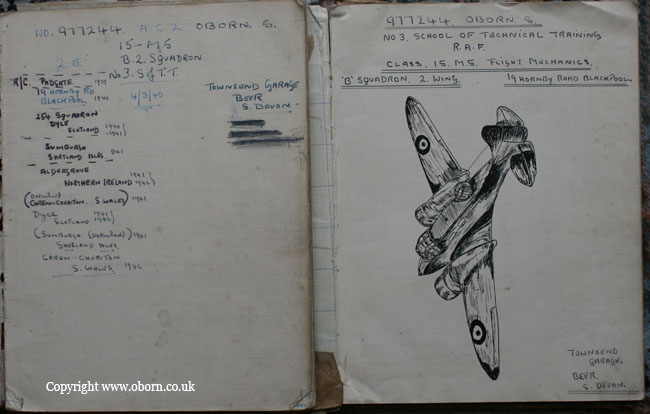 NO. 977244 A.C.2 OBORN. S.
15-M.S
B.2. SQUADRON
No 3. S of T.T.
R/C. PADGATE 1939
79 HORNBY RD
BLACKPOOL 1940
4/3/40
TOWNSEND GARAGE
BEER
S. DEVON.
254 SQUADRON
DYCE 1940
SCOTLAND -1941
SUMBURGH
SHETLAND ISLES
ALDERGROVE 1941
NORTHERN IRELAND 1942
CAREW-CHERITON. S. WALES) 1941
DYCE 1941
SCOTLAND 1942
(SUMBURGH (DETACHED) 1941
SHETLAND ISLES.
CAREW-CHERITON
S. WALES. 1942
Copyright www.oborn.co.uk
977244 OBORN. S.
NO 3. SCHOOL OF TECHNICAL TRAINING
R.A.F.
CLASS. 15. M.S. FLIGHT MECHANICS.
'B' SQUADRON. 2 WING. 79 HORNBY ROAD BLACKPOOL.
TOWNSEND
GARAGE.
BEER.
S. DEVON.